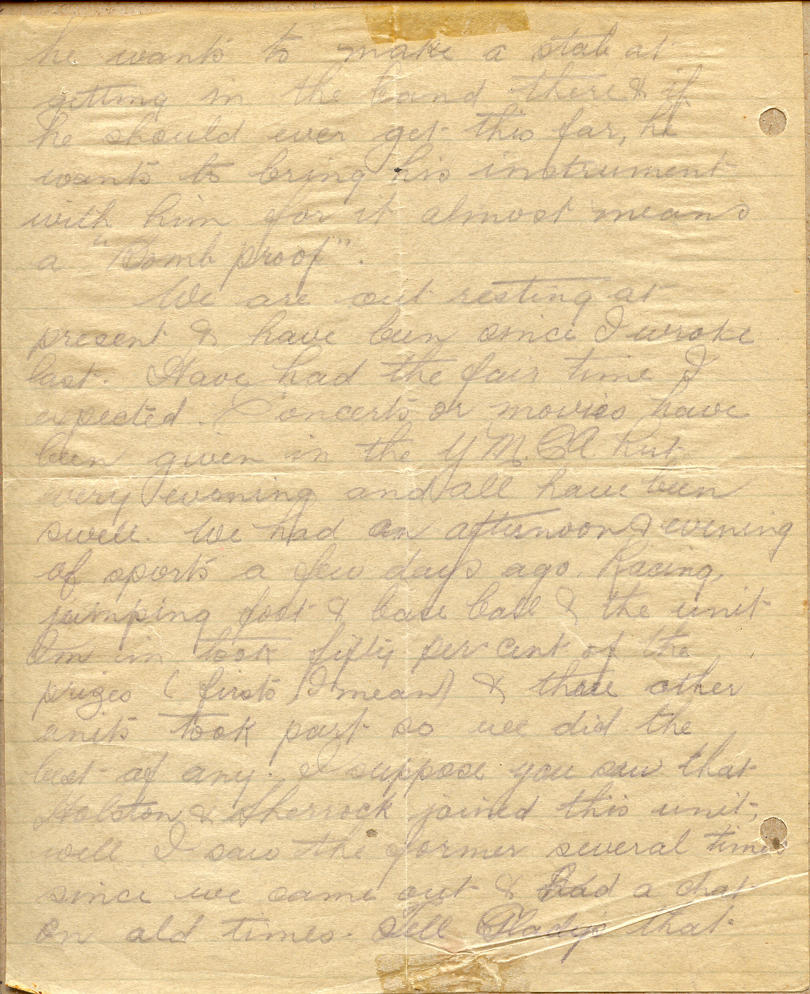 he wants to make a stab at
getting in the band there & if
he should ever get this far, he
wants to bring his instrument
with him for it almost means
a "bomb proof".
We are out resting at
present & have been since I wrote
last. Have had the fair time I
expected. Concerts or movies have
been given in the Y.M.C.A hut
every evening and all have been
swell. We had an afternoon & evening
of sports a few days ago. Racing,
jumping foot & base ball & the unit
I'm in took fifty per cent of the
prizes (firsts I mean) & three other
units took part so we did the
best of any. I suppose you saw that
Holston & Sherrock joined this unit,
well I saw the former several times
since we came out & had a chat
on old times. Tell Gladys that